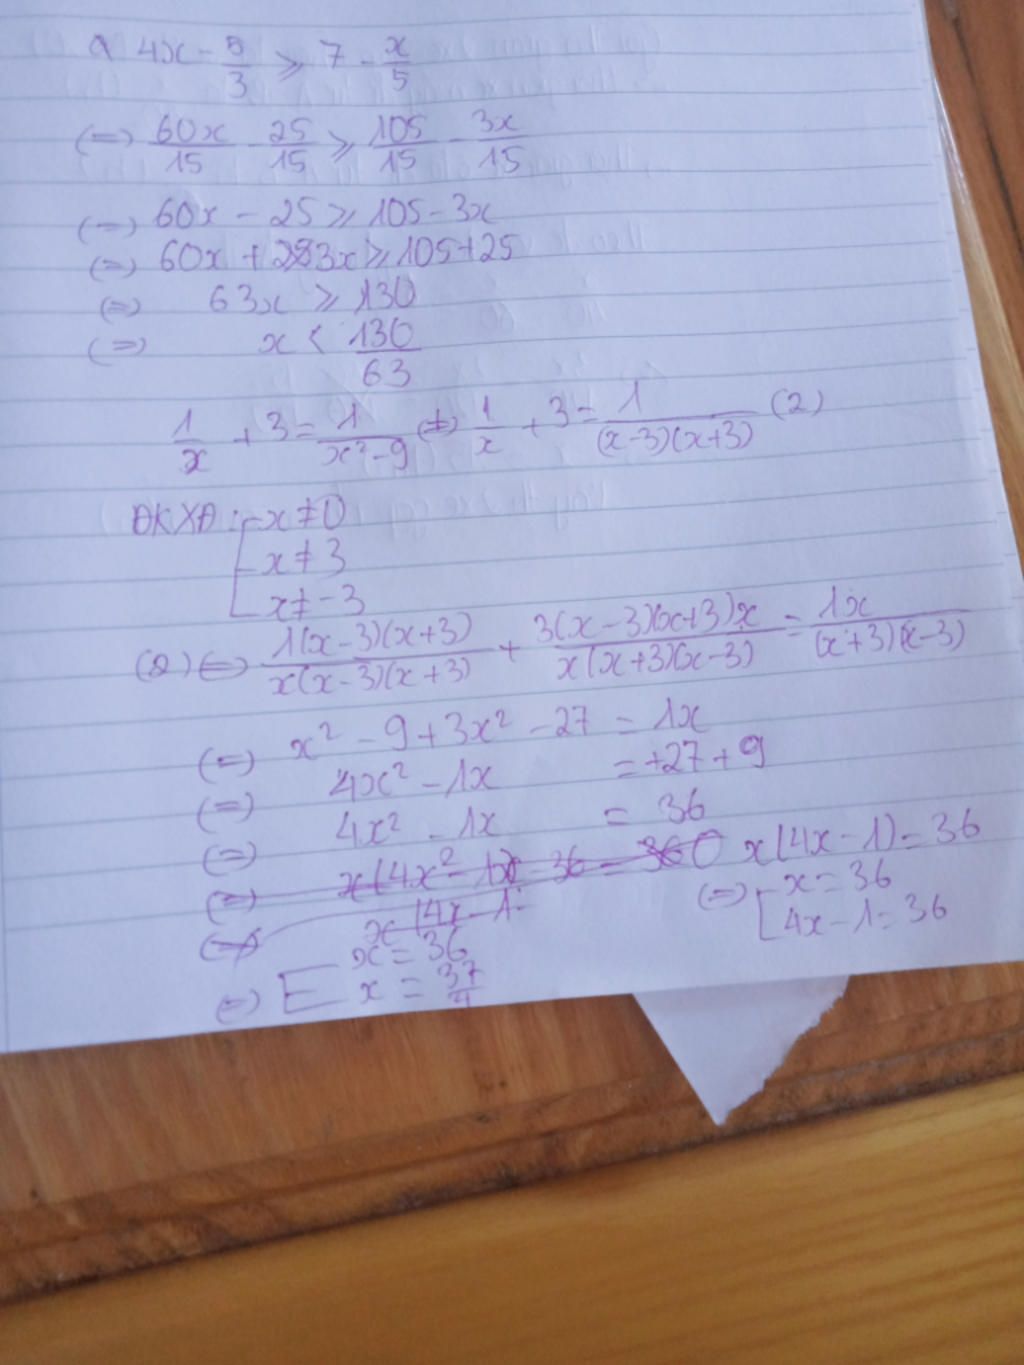 a 4x - 5/3 ≥ 7 - x/5
(=) 60x/15 - 25/15 ≥ 105/15 - 3x/15
(=) 60x - 25 ≥ 105 - 3x
(=) 60x + 3x ≥ 105 + 25
(=) 63x ≥ 130
(=) x < 130/63
1/x + 3 = 1/(x² - 9) (=) 1/x + 3 = 1/((x-3)(x+3)) (2)
ĐKXĐ: x ≠ 0
x ≠ 3
x ≠ -3
(2) (=) 1(x-3)(x+3)/(x(x-3)(x+3)) + 3(x-3)(x+3)x/(x(x+3)(x-3)) = 1x/((x+3)(x-3))
(=) x² - 9 + 3x² - 27 = 1x
(=) 4x² - 1x = +27 + 9
(=) 4x² - 1x = 36
x(4x - 1) = 36
(=) [ x = 36
4x - 1 = 36
(=) [ x = 36
x = 37/4